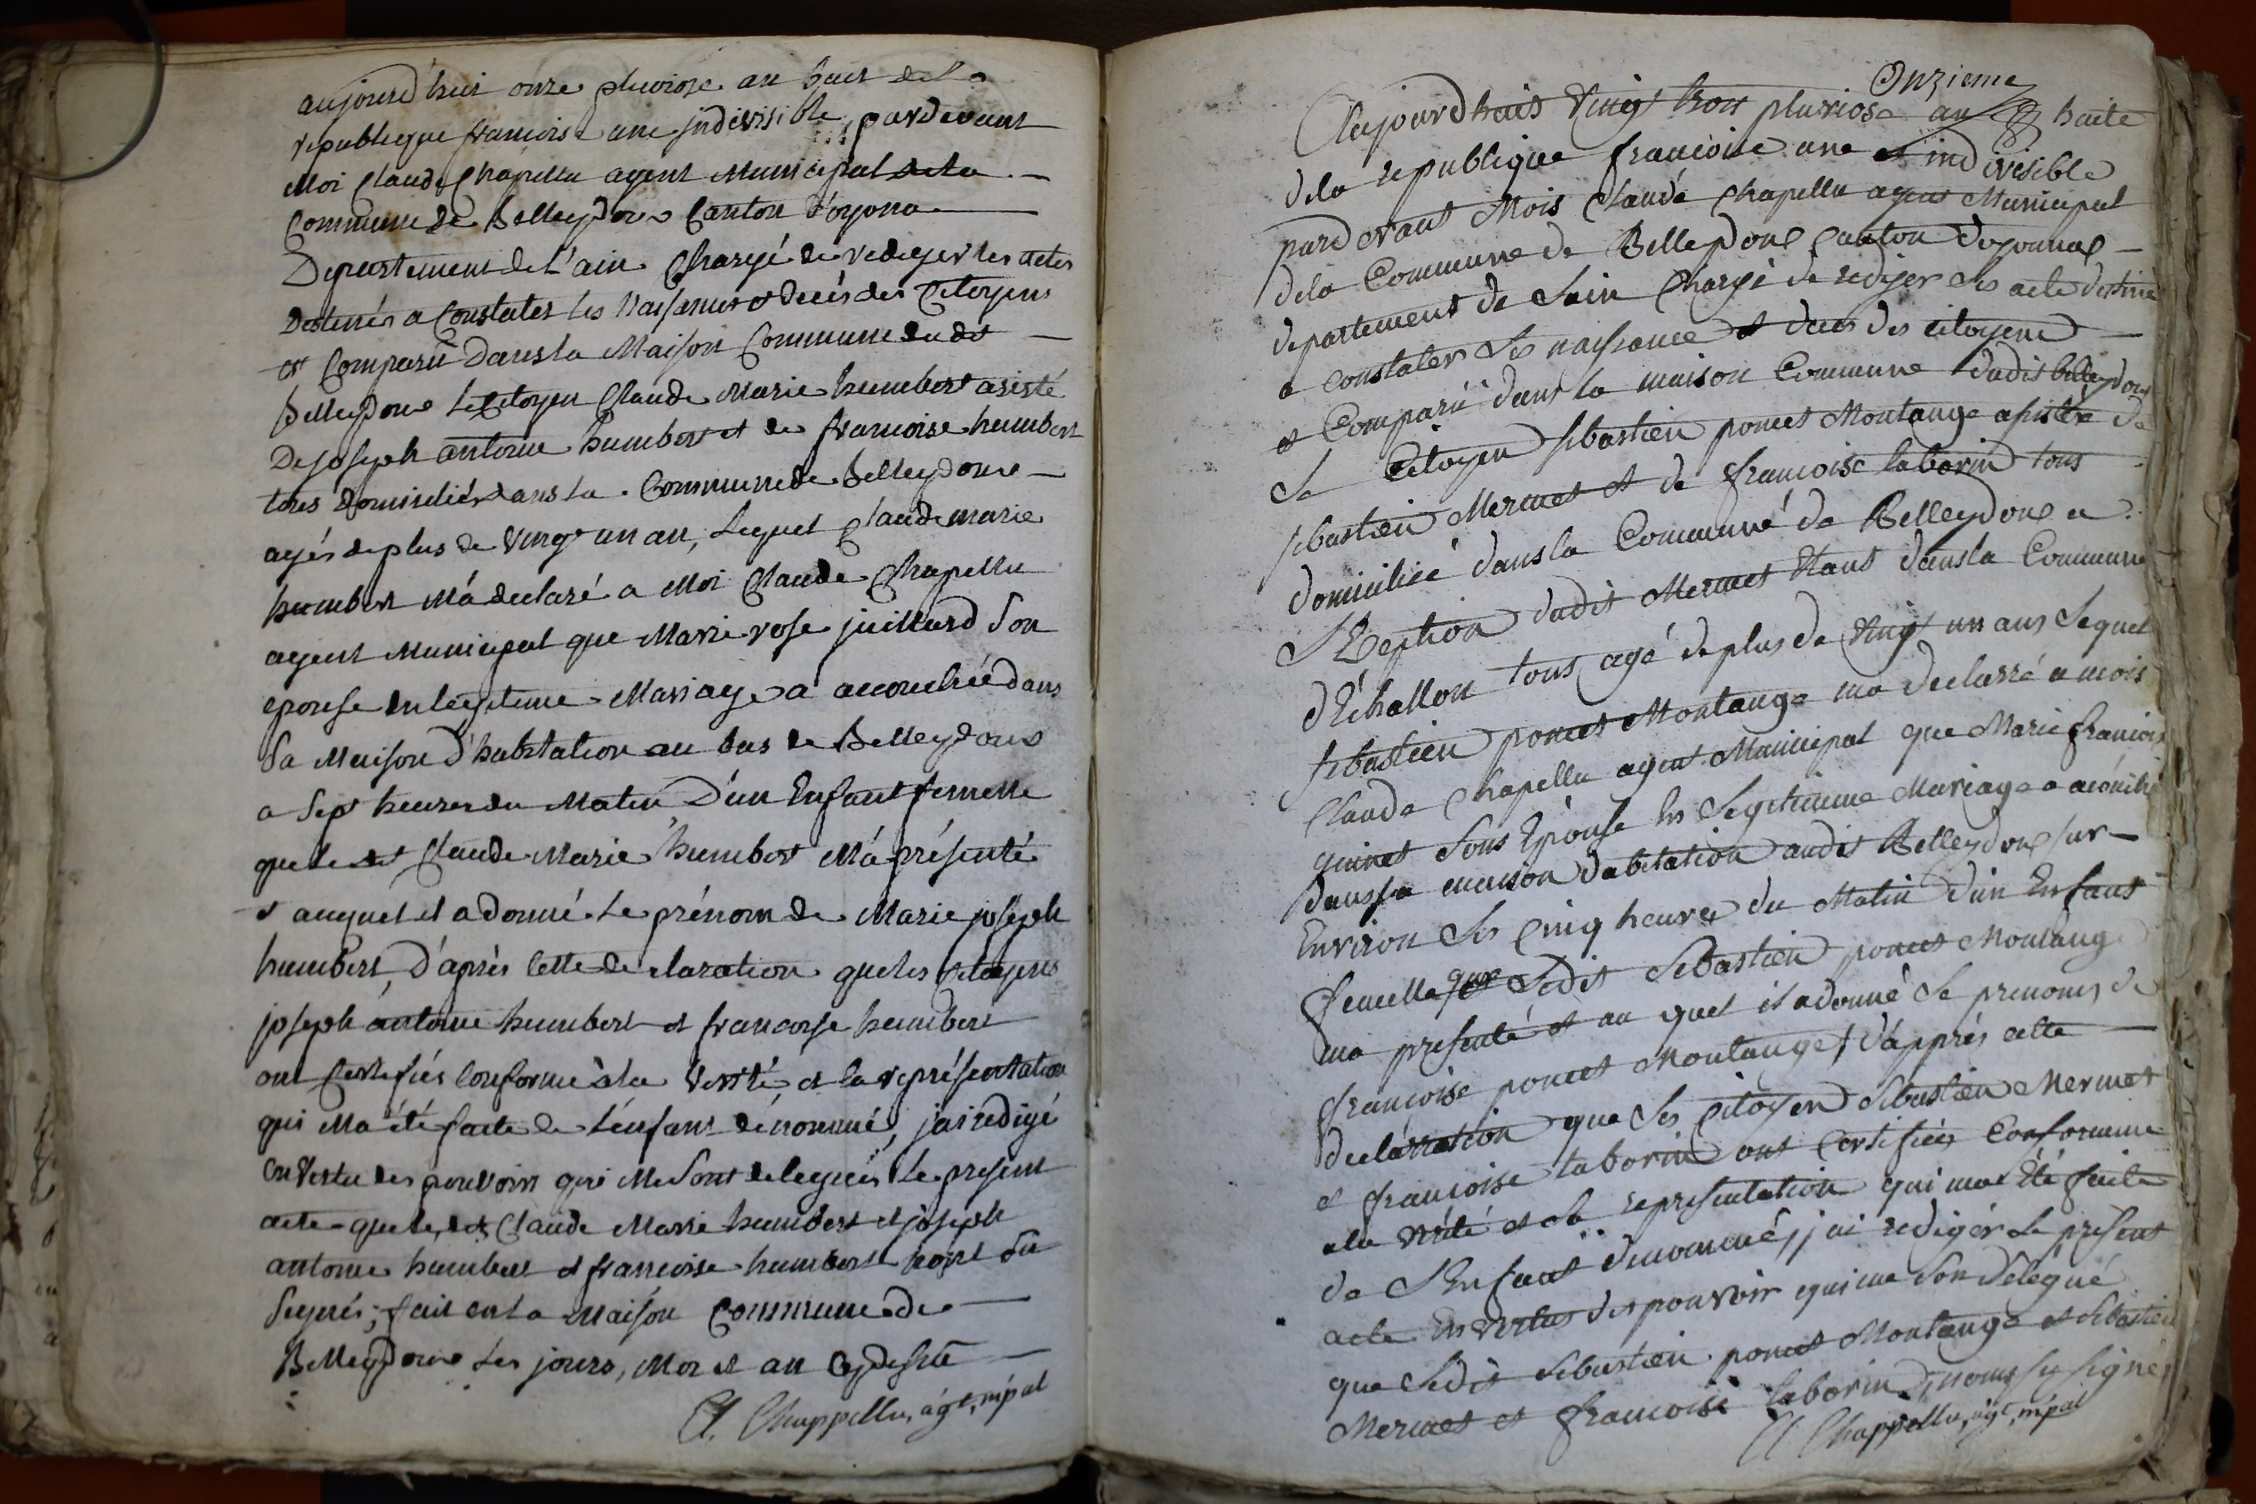 aujourd'huit onze pluviose an huit de la
republique francoise une jndivisible, pardevant
Moi Claude Chapellu agent Municipal de la
Commune de Belleydoux Canton d'oyona
Departement de L'ain Chargé de rediger les actes
Destinés a Constater les Naissances et decès des Citoyens
est Comparu dans la Maison Commune du dt
Belleydoux Le Citoyen Claude Marie humbert asisté
De joseph antoine humbert et de francoise humbert
tous domiciliés dans la Commune de Belleydoux
agés de plus de Vingt un an, Lequel Claude marie
humbert M'a declaré a Moi Claude Chapellu
agent Municipal que Marie rose juillard Son
epouse en legitime Mariage a acouchée dans
Sa Maison d'habitation au bas de Belleydoux
a Sept heures du Matin D'un Enfant femelle
que le dt Claude Marie humbert M'a présenté
et auquel il a donné Le prénom de Marie joseph
humbert, D'après Cette declaration que les Citoyens
joseph antoine humbert et francoise humbert
ont Certifiés Conforme à la Verité, et la représentation
qui M'a été faite de L'enfant dénommé, jai redigé
en Vertu des pouvoirs qui Me Sont delegués Le present
acte que le dt Claude Marie humbert et joseph
antoine humbert et francoise humbert n'ont Su
Signés; fait en la Maison Commune de
Belleydoux Les jours, Moi et an
Cl. Chappellu, agt, mpal
Onzieme
Aujourdhuis Vingt trois pluviose an 8 huite
dela republique francoise une et indivisible
pardevant Mois Claude Chapellu agent Municipal
dela Commune de Belleydoux Canton doyonnax
departement de Lain Chargé de rediger Les acte destiné
a constater Les naissance et deces des citoyens
et Comparu dans la maison Commune dudit belleydoux
Le Citoyen sebastien poncet Montange assistée de
sebastien Mermet et de francoise tabovin tous
domiciliée dans la Commune de Belleydoux a
L'Exeption dudit Mermet Etant dans la Commune
d'Echallon tous agé deplus de Vingt un ans Lequel
sebastien poncet Montange ma declarré a mois
Claude Chapellu agent Municipal que Marie francoise
guinet Sons Epouse en Legetimme Mariage a acouché
dans sa maison dabitation audit Belleydoux sur
Environ Les Cinq heures du Matin d'un Enfant
femella que Ledit Sebastien poncet Montange
ma presenté et au quel il a donné Le prenoms de
francoise poncet Montange, d'apprés cette
declarration que Les citoyen Sebastien Mermet
et francoise tabovin ont Certifiés Conformme
ala Vérité et la representation qui ma Eté faite
de L'Enfant denommé, jai rediger Le present
acte En Vertus des pouvoir qui me Son délégué
que Ledit Sebastien poncet Montange et sebastien
Mermet et francoise tabovin nons sû signé,
Cl Chappellu, agt, mpal